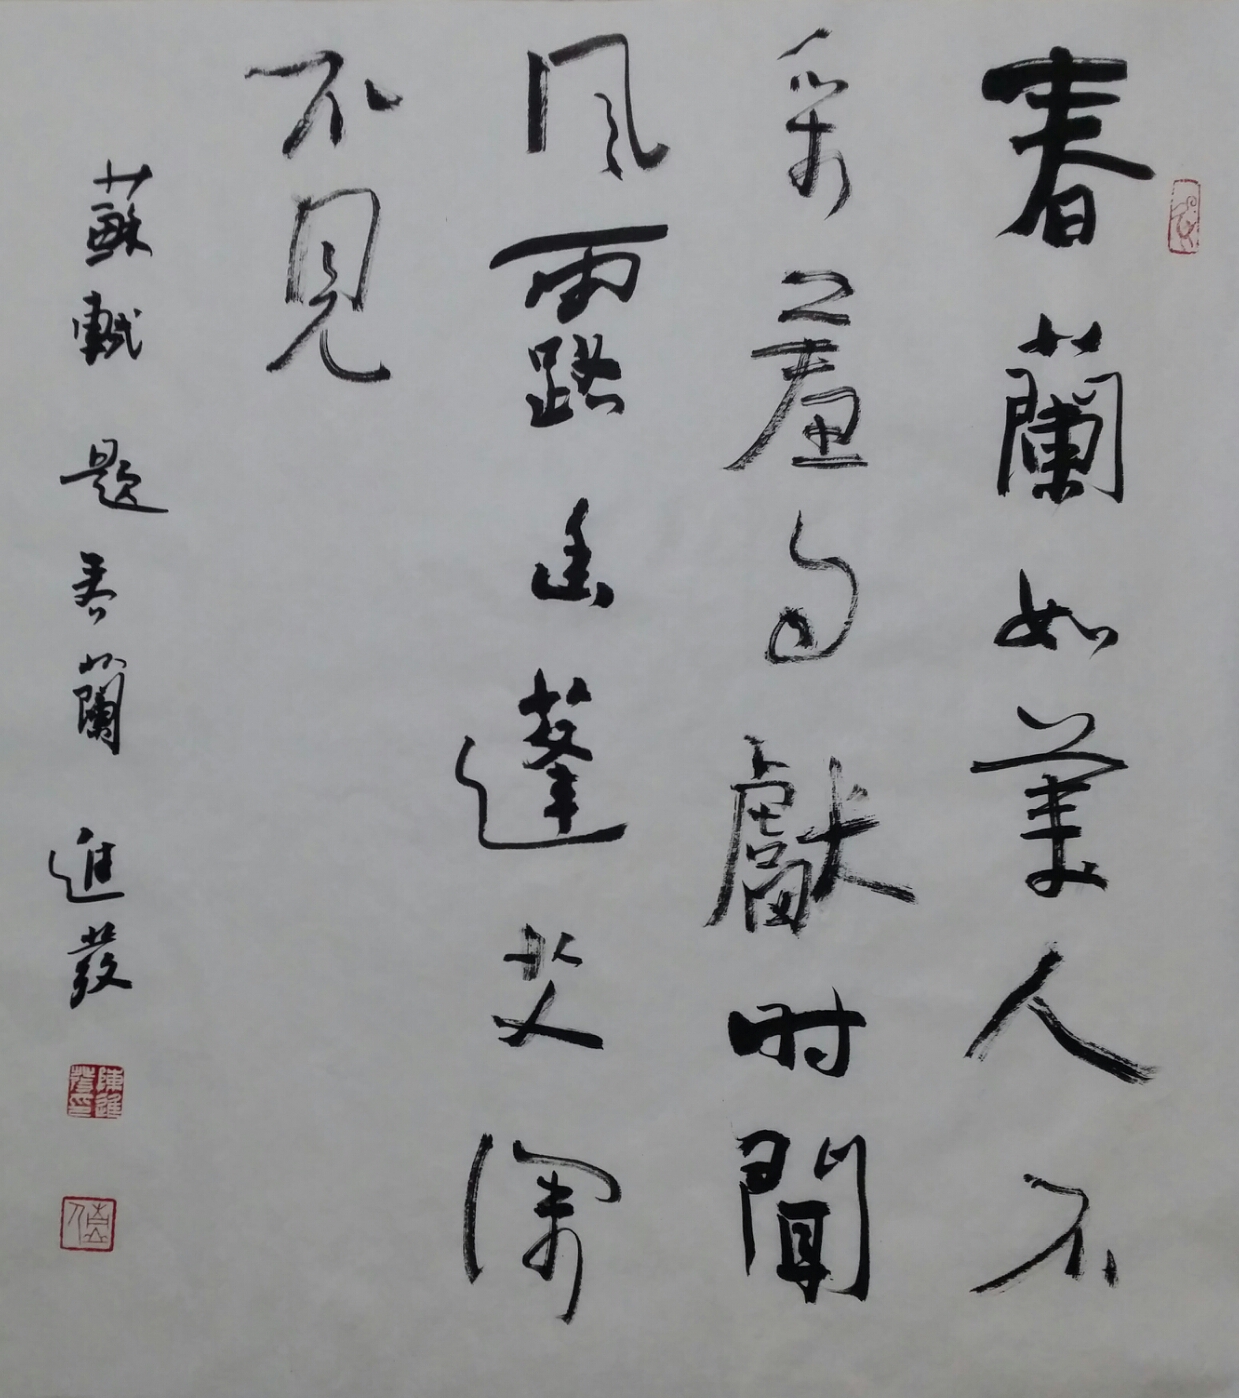 春蘭如美人不
采羞自獻时聞
風露香蓬艾深
不見
蘇軾 題春蘭 進發
陳進發印